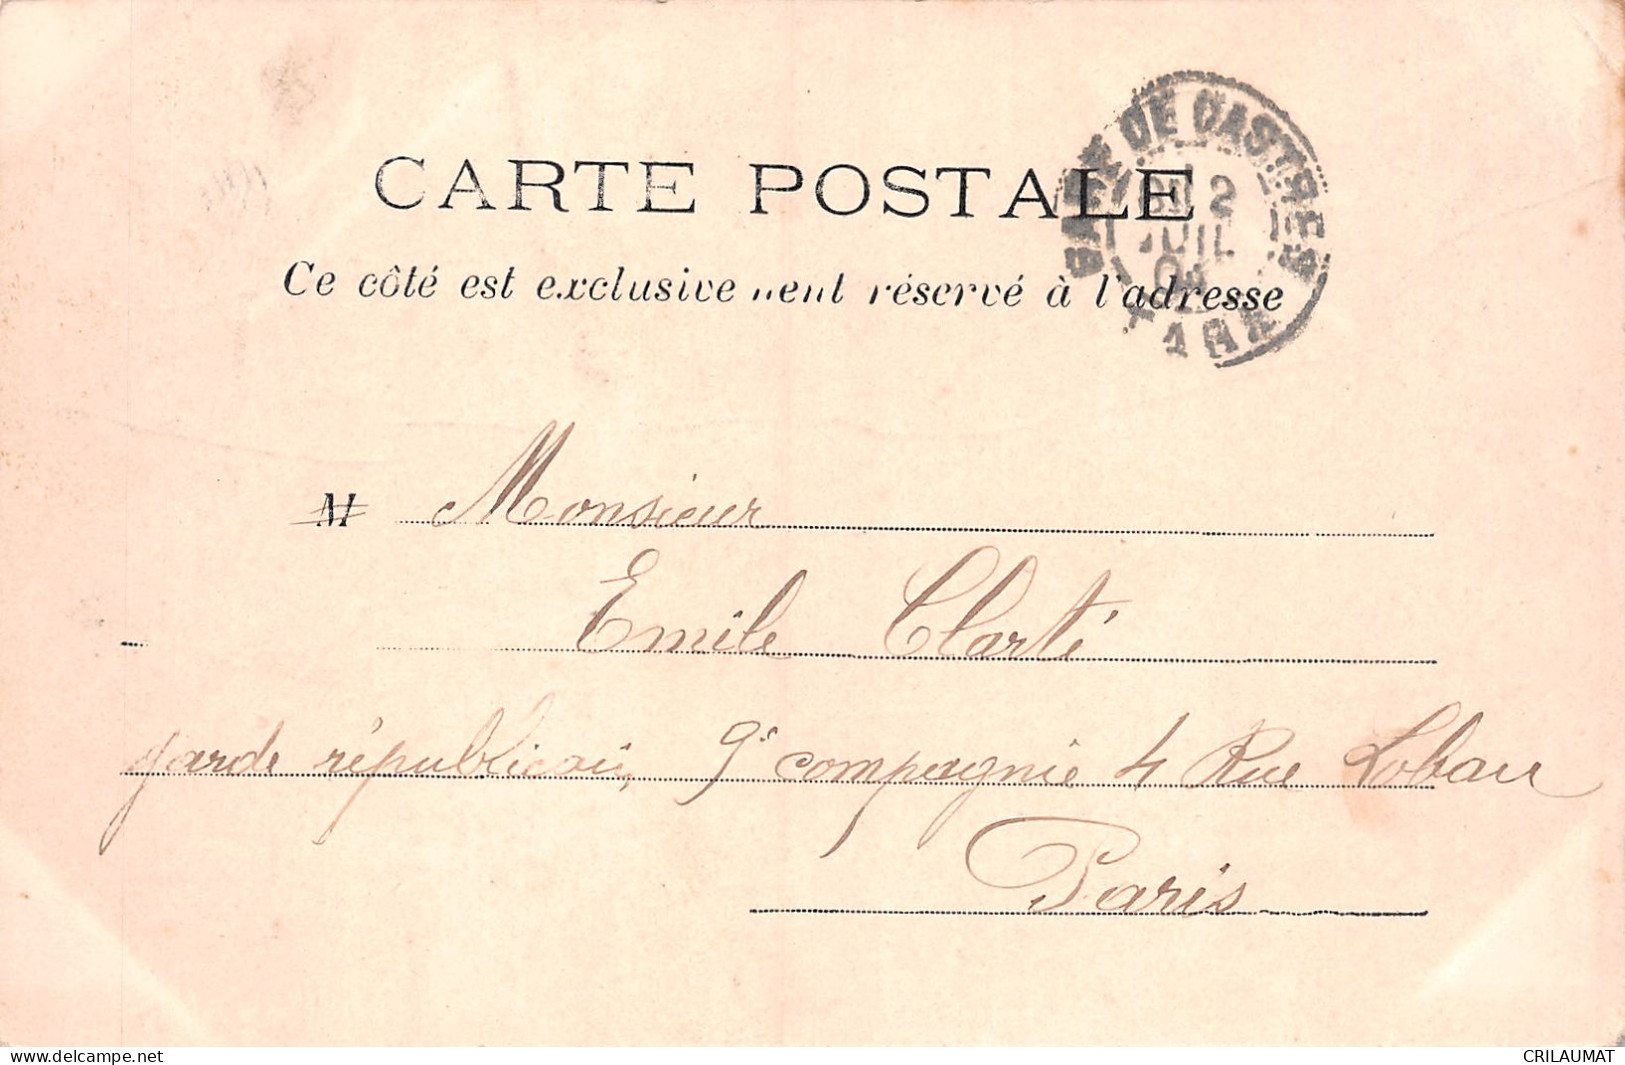 CARTE POSTALE
Ce côté est exclusivement réservé à l'adresse
GARE DE CASTRES
2
JUIL
04
TARN
M Monsieur
Emile Clarté
garde républicain, 9e compagnie 4 Rue Lobau
Paris
delcampe.net
CRILAUMAT